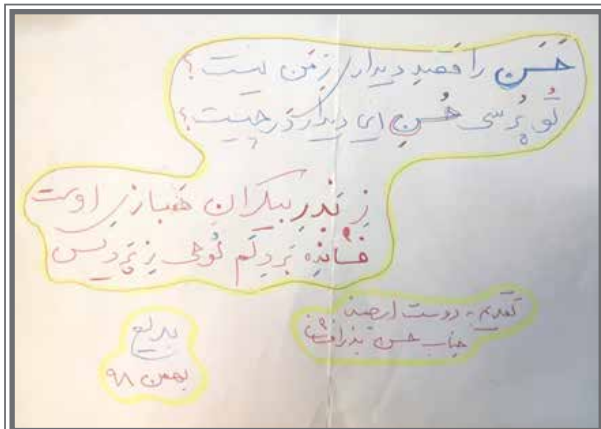 حَسَن را قصدِ دیداری زِ مَن نیست؟
تُو پُرسی حُسنِ این دیدار دَر چیست؟
زِ بَذرِ بیکرانِ اوست
فشانده بَر دِلَم گوئی زِ پَردیس
تقدیم به دوست ارجمند
جناب حسن بذرافشان
بدیع
بهمن ۹۸